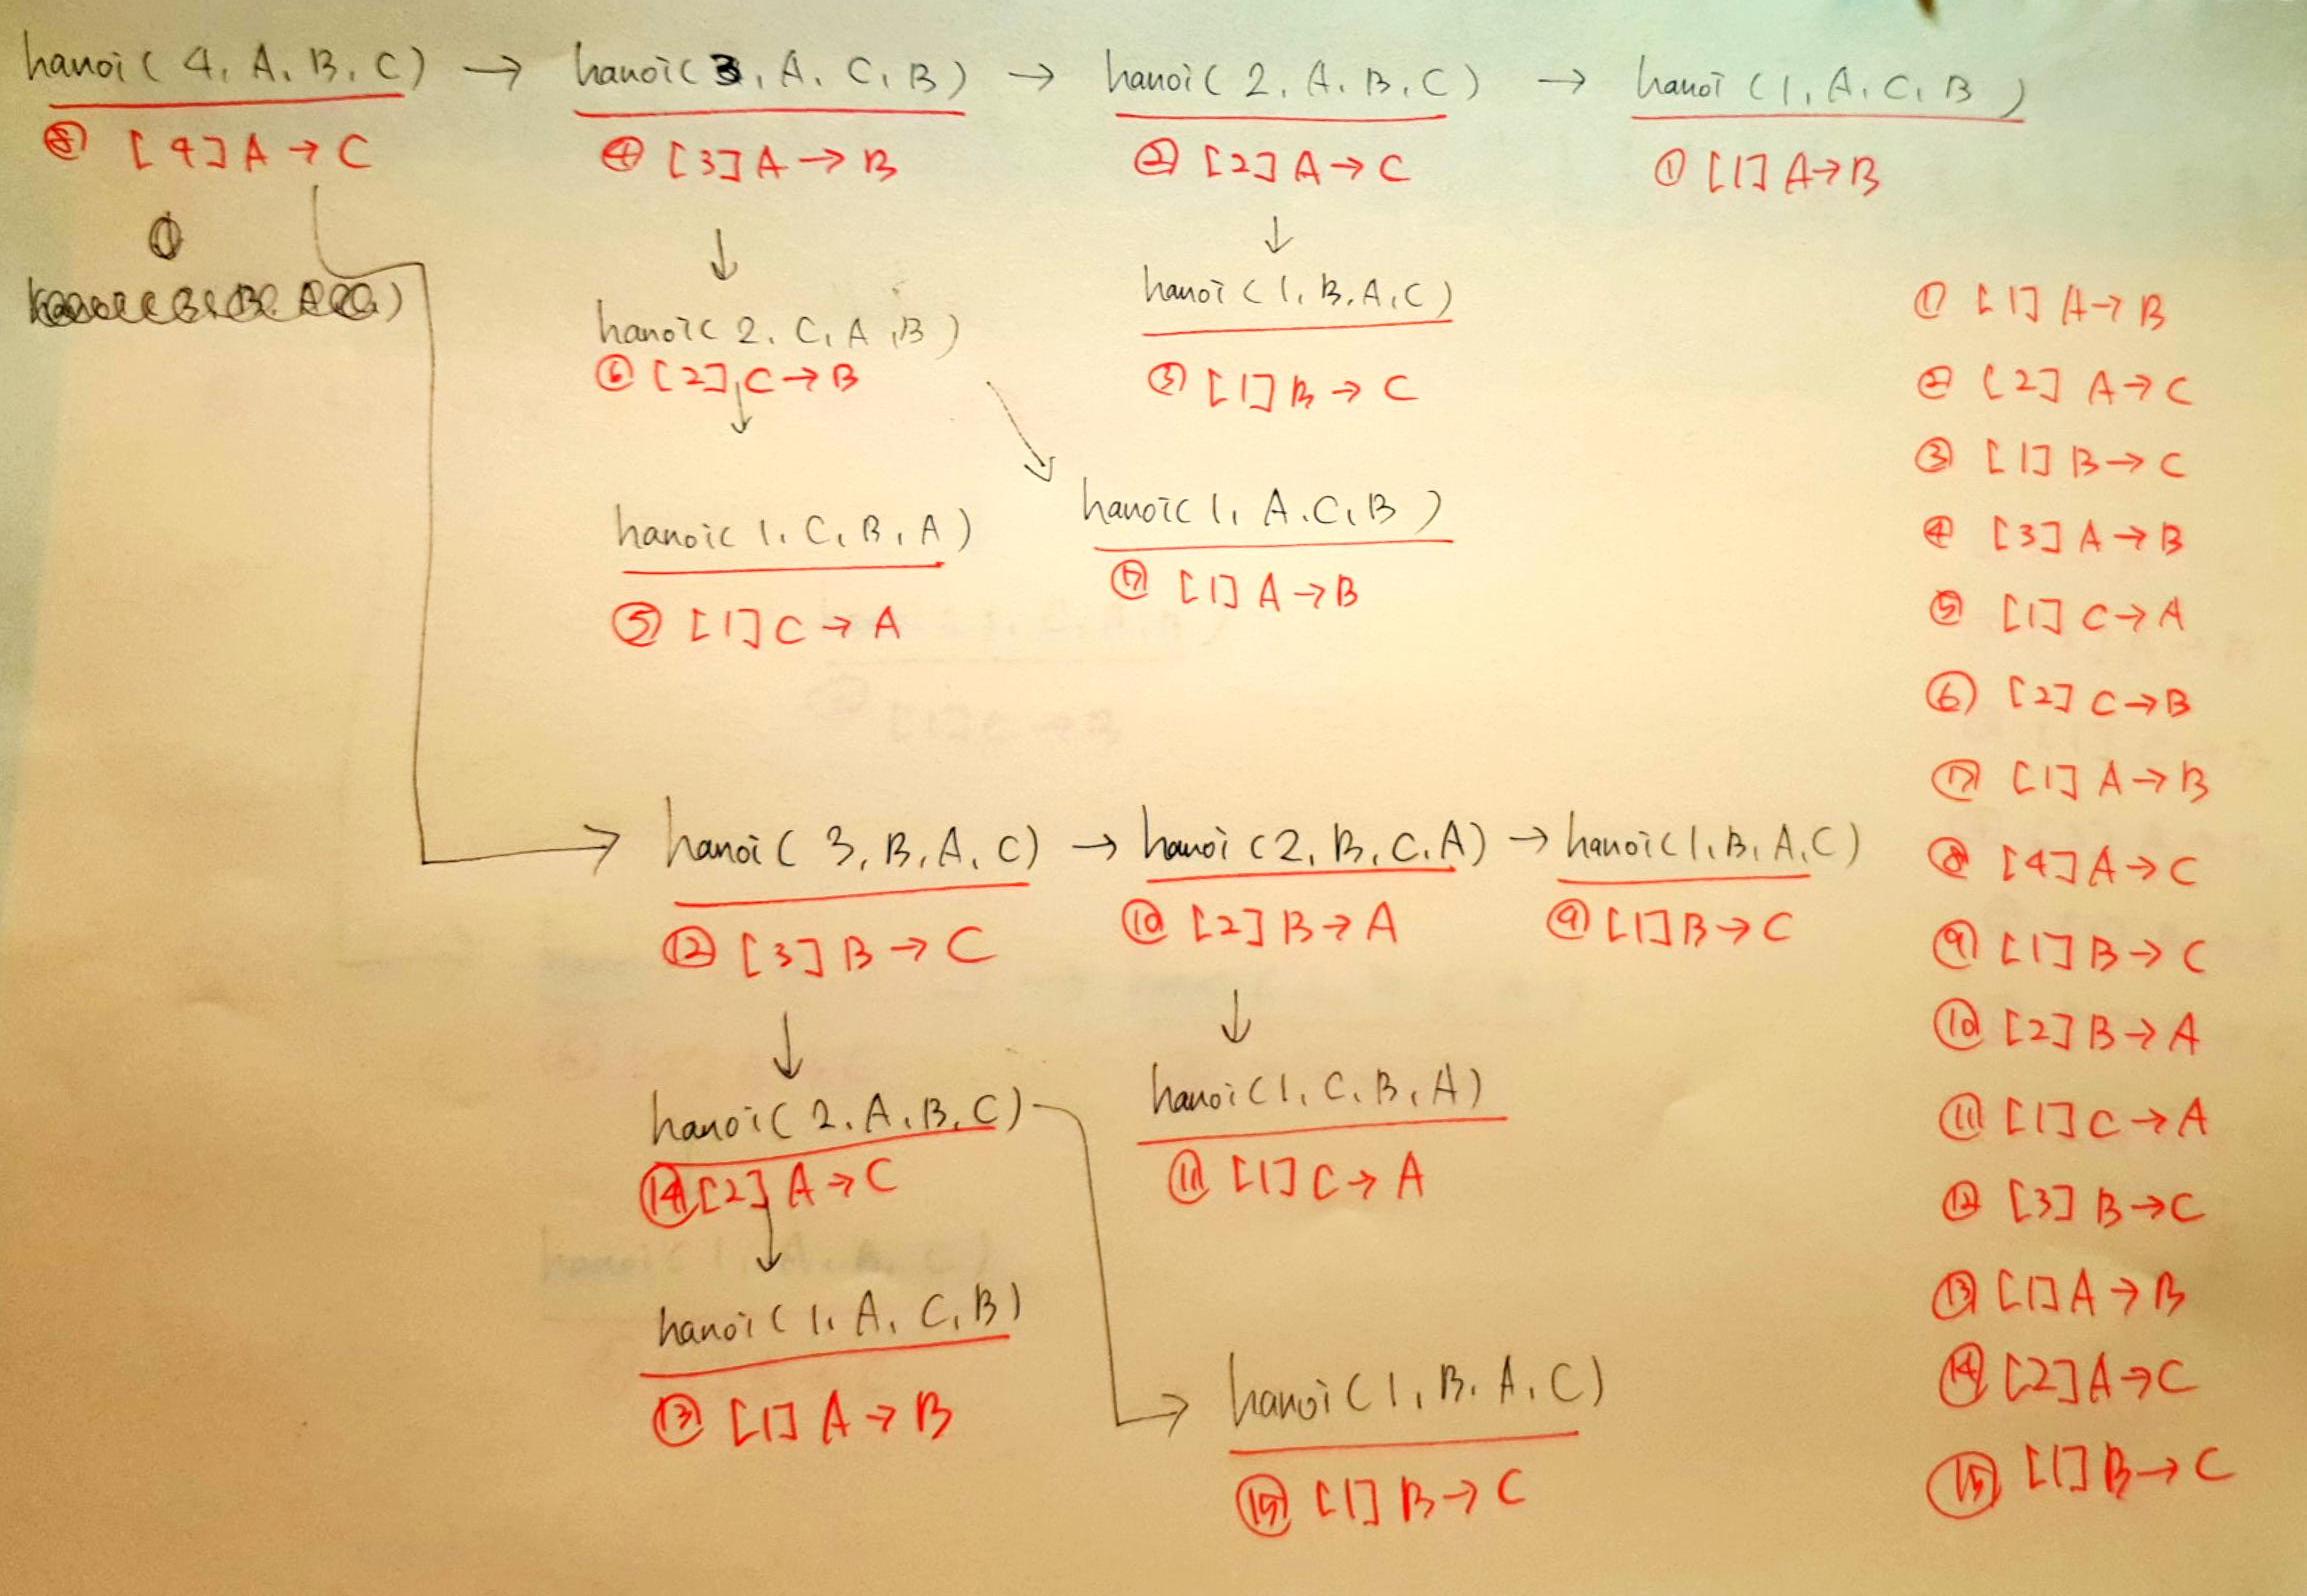 hanoi ( 4, A, B, C ) → hanoi ( 3, A, C, B ) → hanoi ( 2, A, B, C ) → hanoi ( 1, A, C, B )
⑧ [4] A → C
④ [3] A → B
② [2] A → C
① [1] A → B
↓
↓
hanoi ( 2, C, A, B )
⑥ [2] C → B
↓
hanoi ( 1, B, A, C )
③ [1] B → C
hanoi ( 1, C, B, A )
⑤ [1] C → A
hanoi ( 1, A, C, B )
⑦ [1] A → B
→ hanoi ( 3, B, A, C ) → hanoi ( 2, B, C, A ) → hanoi ( 1, B, A, C )
⑫ [3] B → C
⑩ [2] B → A
⑨ [1] B → C
↓
↓
hanoi ( 2, A, B, C )
⑭ [2] A → C
↓
hanoi ( 1, C, B, A )
⑪ [1] C → A
hanoi ( 1, A, C, B )
⑬ [1] A → B
→ hanoi ( 1, B, A, C )
⑮ [1] B → C
① [1] A → B
② [2] A → C
③ [1] B → C
④ [3] A → B
⑤ [1] C → A
⑥ [2] C → B
⑦ [1] A → B
⑧ [4] A → C
⑨ [1] B → C
⑩ [2] B → A
⑪ [1] C → A
⑫ [3] B → C
⑬ [1] A → B
⑭ [2] A → C
⑮ [1] B → C